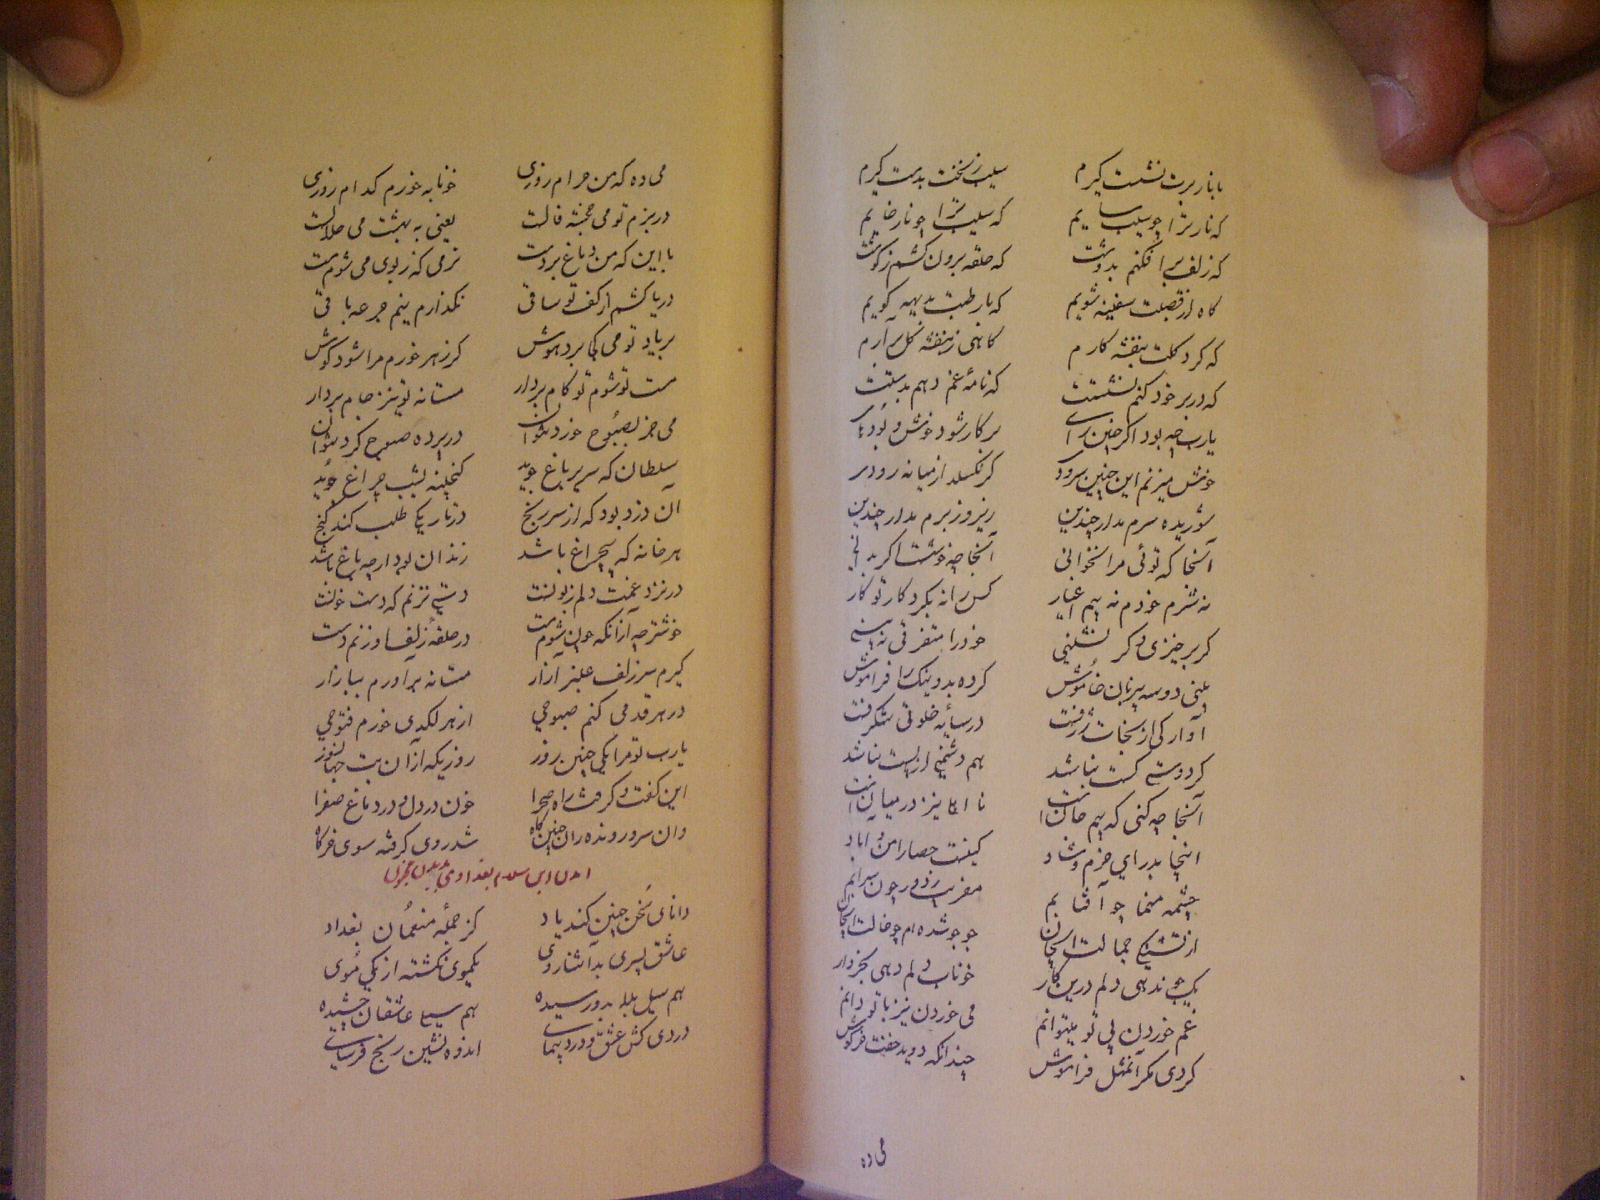 با نار برت نشست گیرم سیب زنخت بدست گیرم
که نار ترا چو سیب سایم که سیب ترا چو نار خایم
که زلف برافکنم بدوشت که حلقه برون کشم ز گوشت
گاه از قصبت سفینه شویم که با رطبت بدیهه گویم
که گرد گلت بنفشه کارم گاهی ز بنفشه گل برآرم
که در بر خود کنم نشستت که نامهٔ غم دهم بدستت
یارب چه بود اگر چنین
خوش میزنم این چنین سرود گر نگسلد از میانه رود
شوریده سرم مدار چندین زیر و زبرم مدار چندین
آنجا که توئی مرا نخوانی آنجا چه خوشست اگر بدانی
نه شرم خودم نه بیم اغیار کس را نه بکرد کار تو کار
گر برخیزی و گر نشینی خود را متفرقی نه بینی
بینی دو سه پیر نان خاموش کرده بد و نیک را فراموش
در سایه خلوتی
گر دوستی کست نباشد هم دشمنی از پست نباشد
آنجا چه کنی که بیم جانست
اینجا بدر آی خرم و شاد کینست حصار امن و آباد
چشمه منما چو آفتابم مفریب ز دور چون سرابم
از تشنگی جمالت ای جان جو جو شده‌ام چو خالت ای جان
یک جو ندهی دلم درین کار خوناب دلم دهی بخروار
غم خوردن بی تو میتوانم می خوردن نیز با تو دانم
کردی مگر آنمثل فراموش چندانکه دوید خفت خرگوش
می ده
می ده که من حرام روزی خونابه خورم کدام روزی
در بزم تو می خجسته فالست یعنی به بهشت می حلالست
با این که من دماغ بر دست نز می که ز بوی می شوم مست
دریا کشم از کف تو ساقی نگذارم نیم جرعه باقی
بر یاد تو می کجا برد هوش گر زهر خورم مرا شود نوش
مست تو شوم تو کام بردار مستانه تو نیز جام بردار
می جز بصبوح خورد نتوان در پرده صبوح کرد نتوان
سلطان که سریر باغ جوید گنجینه بشب چراغ جوید
آن دزد بود که از سر رنج در تاریکی طلب کند گنج
هر خانه که بیچراغ باشد زندان بود ار چه باغ باشد
در نزد غمت دلم زبونست دستی نزنم که دست خونست
خوشتر چه از آنکه چون شوم مست در حلقه زلفها زنم دست
گیرم سر زلف عنبر آزار مستانه برآورم ببازار
در هر قدمی کنم صبوحی از هر لگدی خورم فتوحی
یارب تو مرا یکی چنین روز روزی کن از آن بت جهانسوز
این گفت و گرفت راه صحرا خون در دل و در دماغ صفرا
وان سرو رونده زان چمنگاه شد روی گرفته سوی خرگاه
آمدن ابن سلام بغدادی بدیدن مجنون
دانای سخن چنین کند یاد کز جمله منعمان بغداد
عاشق پسری بد آشناروی یکموی نگشته از یکی موی
هم سیل بلا بدو رسیده هم سیلی عاشقان چشیده
دردی کش عشق و درد پیمای اندوه نشین رنج فرسای